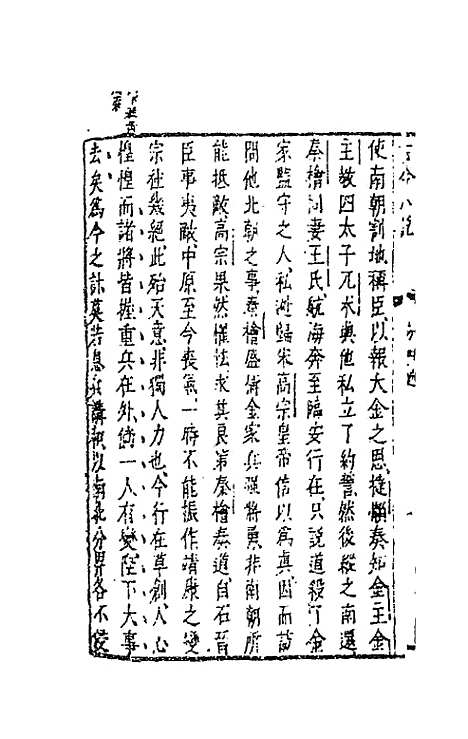 古今小說
使南朝割地稱臣以報大金之恩撻懶奏知金主金
主教四太子兀朮與他私立了約誓然後縱之南還
秦檜同妻王氏航海奔至臨安行在只說道殺了金
家監守之人私逃歸宋高宗皇帝信以爲真因而訪
問他北朝之事秦檜盛偁金家兵强將勇非南朝所
能抵敵高宗果然懼怯求其良策秦檜奏道自石晉
臣事夷敵中原至今喪氣一時不能振作靖康之變
宗社幾絕此殆天意非獨人力也今行在草創人心
惶惶而諸將皆握重兵在外倘一人有變陛下大事
去矣爲今之計莫若息兵講和以南北分界各不侵